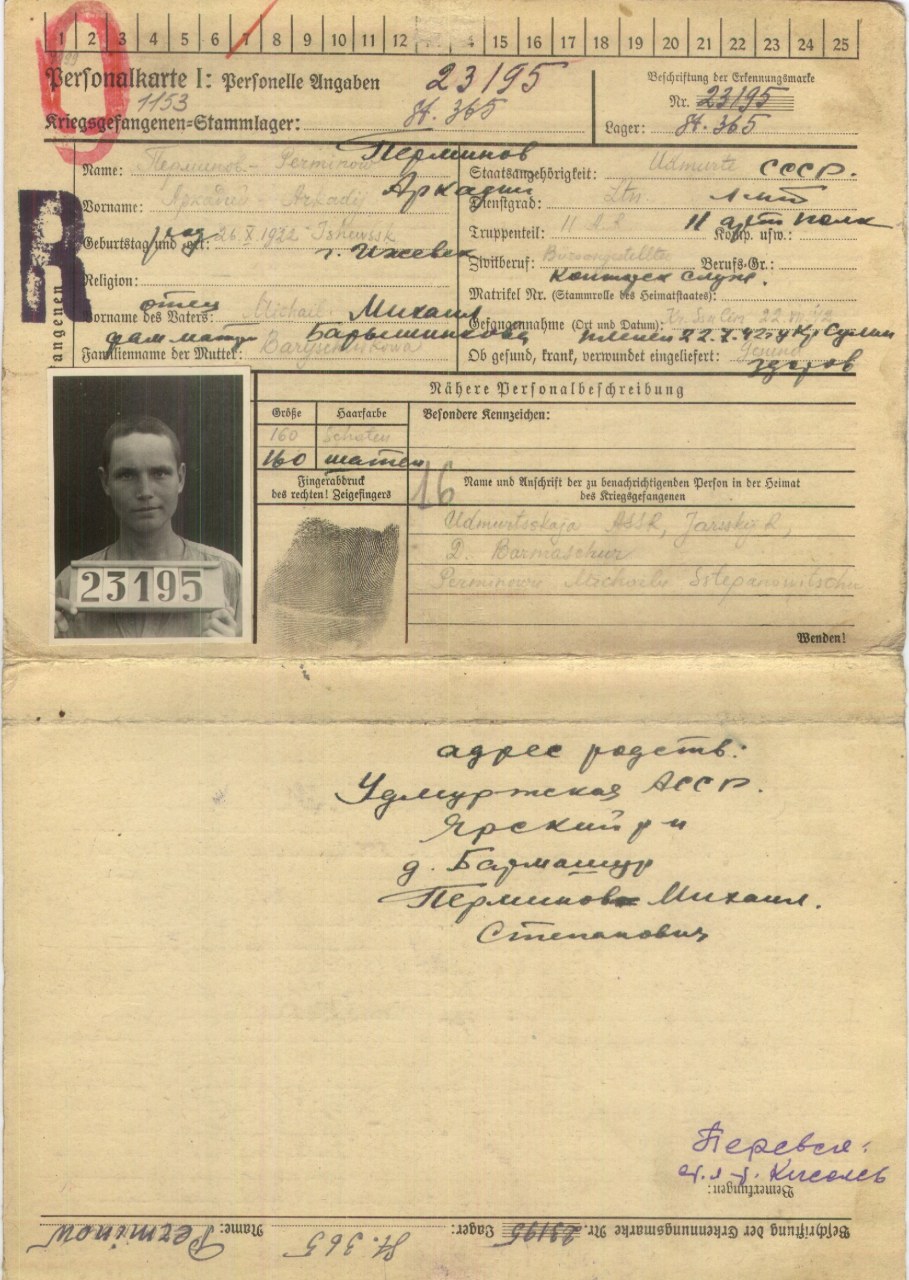 1 2 3 4 5 6 7 8 9 10 11 12 15 16 17 18 19 20 21 22 23 24 25
Personalkarte I: Personelle Angaben 23195
1153
Kriegsgefangenen-Stammlager: St. 365
Beschriftung der Erkennungsmarke
Nr. 23195
Lager: St. 365
Перминов
Name: Перминов - Perminow
Аркадий
Vorname: Аркадий - Arkadij
Geburtstag und -ort: 26.X.1922 Ishewssk
г. Ижевск
Religion:
отец
Vorname des Vaters: Michail Михаил
фам. матери Барышникова
Familienname der Mutter: Baryschnikowa
Staatsangehörigkeit: Udmurte СССР.
Dienstgrad: Ltn. л-нт
Truppenteil: 11 Komp. usw.: 11 полк
Zivilberuf: Büroangestellter Berufs-Gr.:
служ.
Matrikel Nr. (Stammrolle des Heimatstaates):
Gefangennahme (Ort und Datum): 22. VII. 42
пленен 22.7.42 г. у Кр. Сулин
Ob gesund, krank, verwundet eingeliefert: Gesund
здоров
R
angenen
23195
Nähere Personalbeschreibung
Größe Haarfarbe Besondere Kennzeichen:
160 Schaten
160 шатен
Fingerabdruck
des rechten! Zeigefingers
16
Name und Anschrift der zu benachrichtigenden Person in der Heimat
des Kriegsgefangenen
Udmurtskaja ASSR, Jarsskij R,
D. Barmaschur
Perminowu Michailu Sstepanowitschu
Wenden!
адрес родств:
Удмуртская АССР.
Ярский р-н
д. Бармашур
Перминов Михаил.
Степанович
Перевел:
ст. л-т. Киселев
Bemerkungen:
Beschriftung der Erkennungsmarke Nr. 23195 Lager: St. 365 Name: Perminow